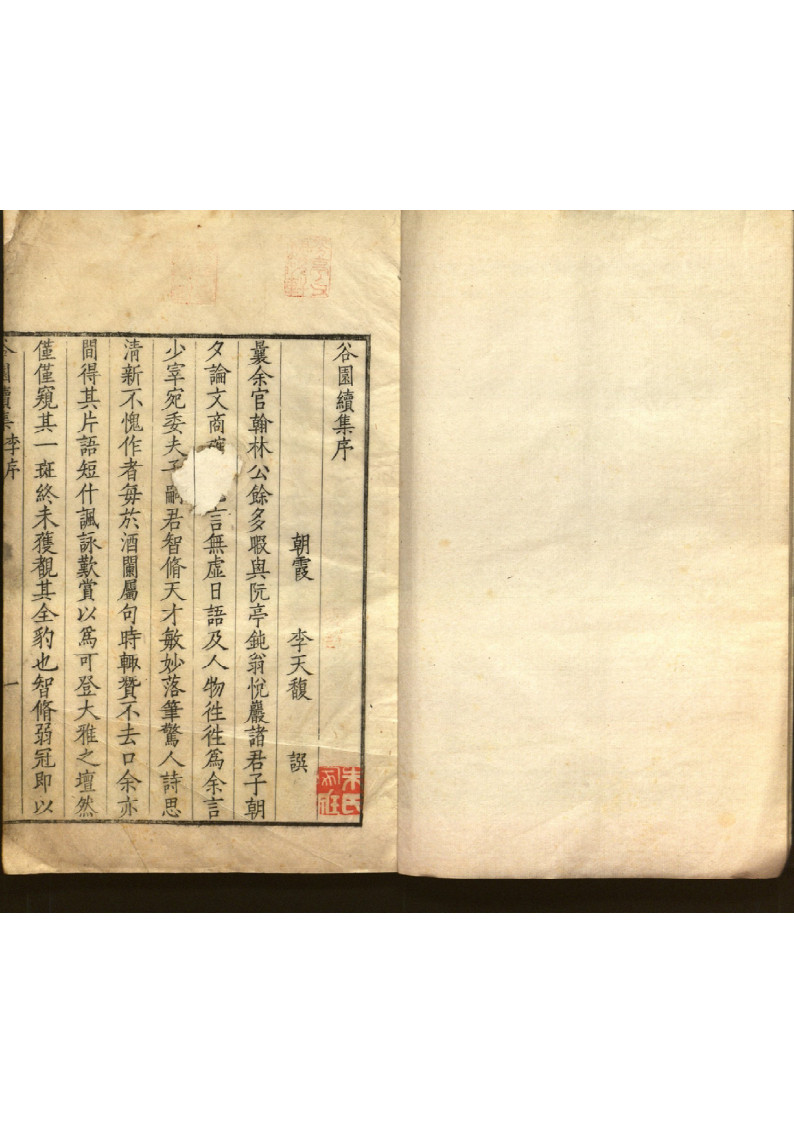 谷園續集序
朝霞 李天馥 譔
曩余官翰林公餘多暇與阮亭鈍翁悅巖諸君子朝
夕論文商 言無虛日語及人物徃徃爲余言
少宰宛委夫子嗣君智脩天才敏妙落筆驚人詩思
清新不愧作者每於酒闌屬句時輙贊不去口余亦
間得其片語短什諷詠歎賞以爲可登大雅之壇然
僅僅窺其一斑終未獲覩其全豹也智脩弱冠即以
谷園續集 李序 一
朱氏